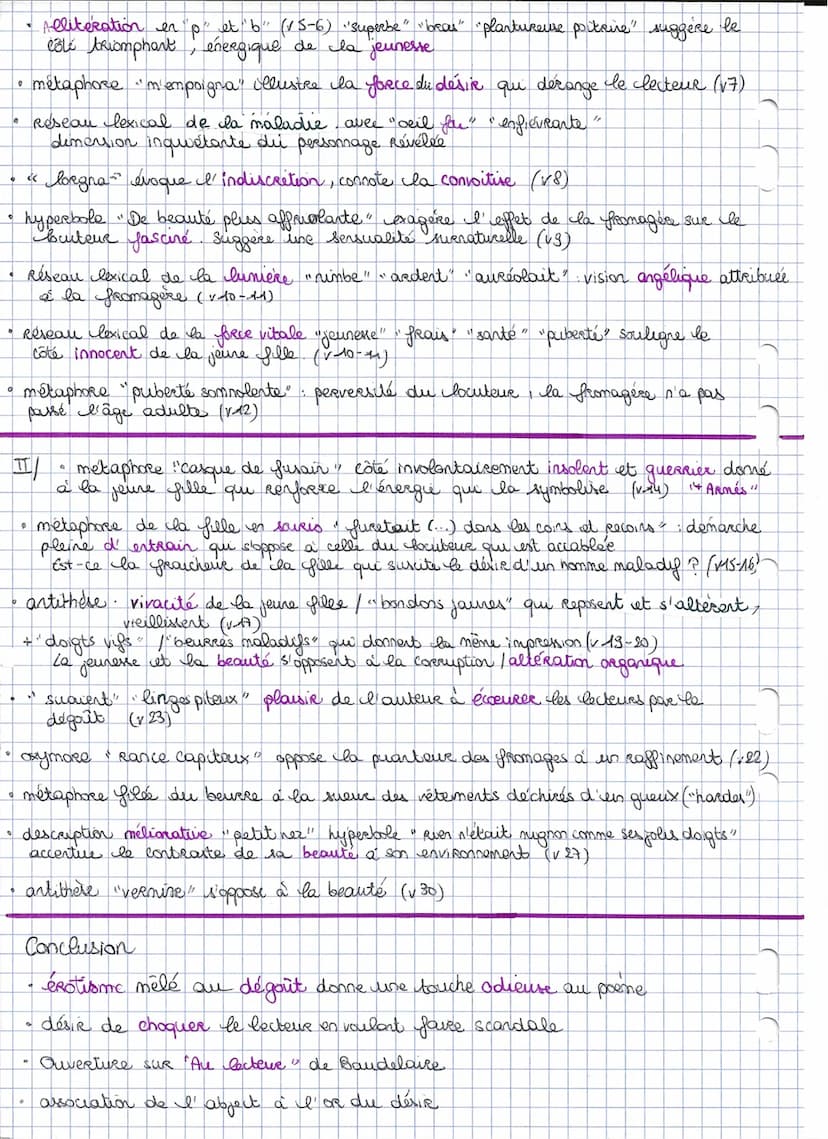 • Allitération en "p" et "b" (v5-6) "superbe" "bras" "plantureuse poitrine" suggère le
côté triomphant, énergique de la jeunesse
• métaphore "m'empoigna" illustre la force du désir qui dérange le lecteur (v7)
• Réseau lexical de la maladie avec "oeil fu" "enfiévrante"
dimension inquiétante du personnage révélée
• « lorgna » évoque l'indiscrétion, connote la convoitise (v8)
• hyperbole "De beauté plus affriolante" exagère l'effet de la fromagère sur le
locuteur fasciné. Suggère une sensualité surnaturelle (v9)
• Réseau lexical de la lumière "nimbe" "ardent" "auréolait" : vision angélique attribuée
à la fromagère (v10-11)
• réseau lexical de la force vitale "jeunesse" "frais" "santé" "puberté" souligne le
côté innocent de la jeune fille. (v10-11)
• métaphore "puberté somnolente" : perversité du locuteur, la fromagère n'a pas
passé l'âge adulte (v12)
II/ • métaphore "casque de fusain" côté involontairement insolent et guerrier donné
à la jeune fille qui renforce l'énergie qui la symbolise (v14) "+ Armés"
• métaphore de la fille en souris "furetait (...) dans les coins et recoins" : démarche
pleine d'entrain qui s'oppose à celle du locuteur qui est accablée
Est-ce la fraîcheur de la fille qui suscite le désir d'un homme maladif ? (v15-16)
• antithèse. vivacité de la jeune fille / "bondons jaunes" qui reposent et s'altèrent,
vieillissent (v17)
+ "doigts vifs" / "beurres maladifs" qui donnent la même impression (v19-20)
La jeunesse et la beauté s'opposent à la corruption / altération organique
• "suaient" "linges piteux" plaisir de l'auteur à écoeurer les lecteurs par le
dégoût (v23)
• oxymore "Rance capiteux" oppose la puanteur des fromages à un raffinement (v22)
• métaphore filée du beurre à la sueur des vêtements déchirés d'un gueux ("hardes")
• description méliorative "petit nez" hyperbole "Rien n'était mignon comme ses jolis doigts"
accentue le contraste de sa beauté à son environnement (v27)
• antithèse "vermine" s'oppose à la beauté (v30)
Conclusion
• érotisme mêlé au dégoût donne une touche odieuse au poème
• désir de choquer le lecteur en voulant faire scandale
• Ouverture sur "Au lecteur" de Baudelaire
• association de l'abject à l'or du désir